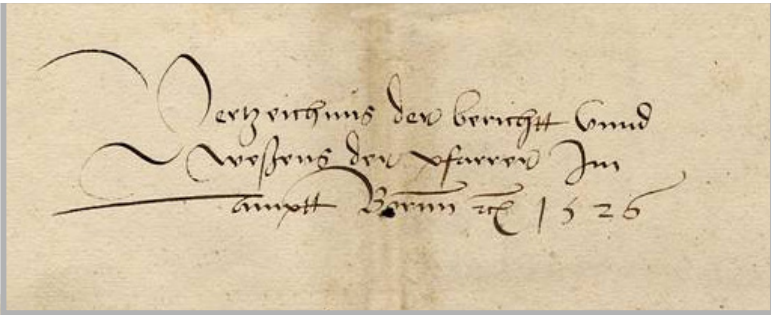 Vertzeichnis der berichtt Vnnd
weßens der pfarrer Im
amptt Bornn 1526